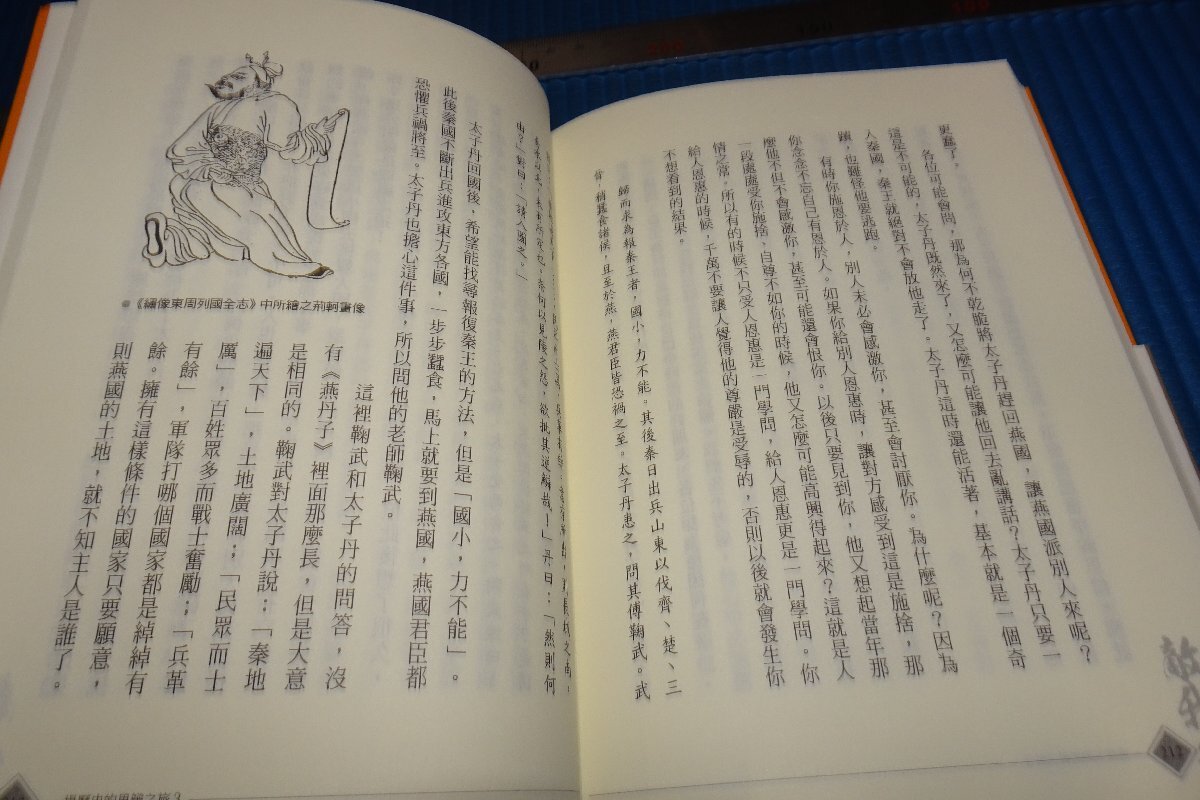 更蠢了。
各位可能會問，那為何不乾脆將太子丹趕回燕國，讓燕國派別人來呢？
這是不可能的，太子丹既然來了，又怎麼可能讓他回去亂講話？太子丹只要一
人秦國，秦王就絕對不會放他走了。太子丹這時還能活著，基本就是一個奇
蹟，也難怪他要逃跑。
有時你施恩於人，別人未必會感激你，甚至會討厭你。為什麼呢？因為
你念念不忘自己有恩於人。如果你給別人恩惠時，讓對方感受到這是施捨，那
麼他不但不會感激你，甚至可能還會恨你。以後只要見到你，他又想起當年那
一段處處受你施捨、自尊不如你的時候，他又怎麼可能高興得起來？這就是人
情之常。所以有的時候不只受人恩惠是一門學問，給人恩惠更是一門學問。你
給人恩惠的時候，千萬不要讓人覺得他的尊嚴是受辱的，否則以後就會發生你
不想看到的結果。
歸而求為報秦王者，國小，力不能。其後秦日出兵山東以伐齊、楚、三
晉，稍蠶食諸侯，且至於燕，燕君臣皆恐禍之至。太子丹患之，問其傅鞠武。武
由？」對曰：「請入圖之。」
太子丹回國後，希望能找尋報復秦王的方法，但是「國小，力不能」。
此後秦國不斷出兵進攻東方各國，一步步蠶食，馬上就要到燕國，燕國君臣都
恐懼兵禍將至。太子丹也擔心這件事，所以問他的老師鞠武。
這裡鞠武和太子丹的問答，沒
有《燕丹子》裡面那麼長，但是大意
是相同的。鞠武對太子丹說：「秦地
遍天下」，土地廣闊；「民眾而士
厲」，百姓眾多而戰士奮勵；「兵革
有餘」，軍隊打哪個國家都是綽綽有
餘。擁有這樣條件的國家只要願意，
則燕國的土地，就不知主人是誰了。
《繡像東周列國全志》中所繪之荊軻畫像